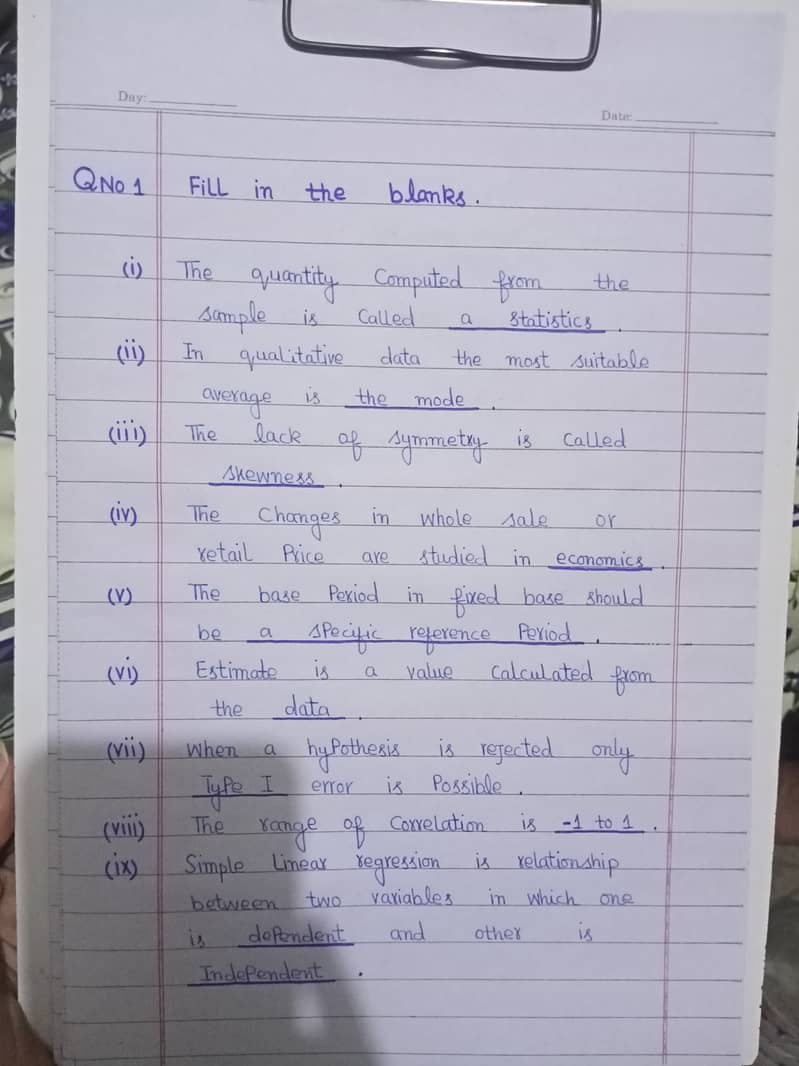 Day:
Date:
QNo 1 Fill in the blanks.
(i) The quantity Computed from the
sample is Called a statistics .
(ii) In qualitative data the most suitable
average is the mode .
(iii) The lack of symmetry is Called
skewness .
(iv) The Changes in whole sale or
retail Price are studied in economics .
(v) The base Period in fixed base should
be a specific reference Period .
(vi) Estimate is a value Calculated from
the data .
(vii) When a hypothesis is rejected only
Type I error is Possible .
(viii) The range of Correlation is -1 to 1 .
(ix) Simple Linear regression is relationship
between two variables in which one
is dependent and other is
Independent .